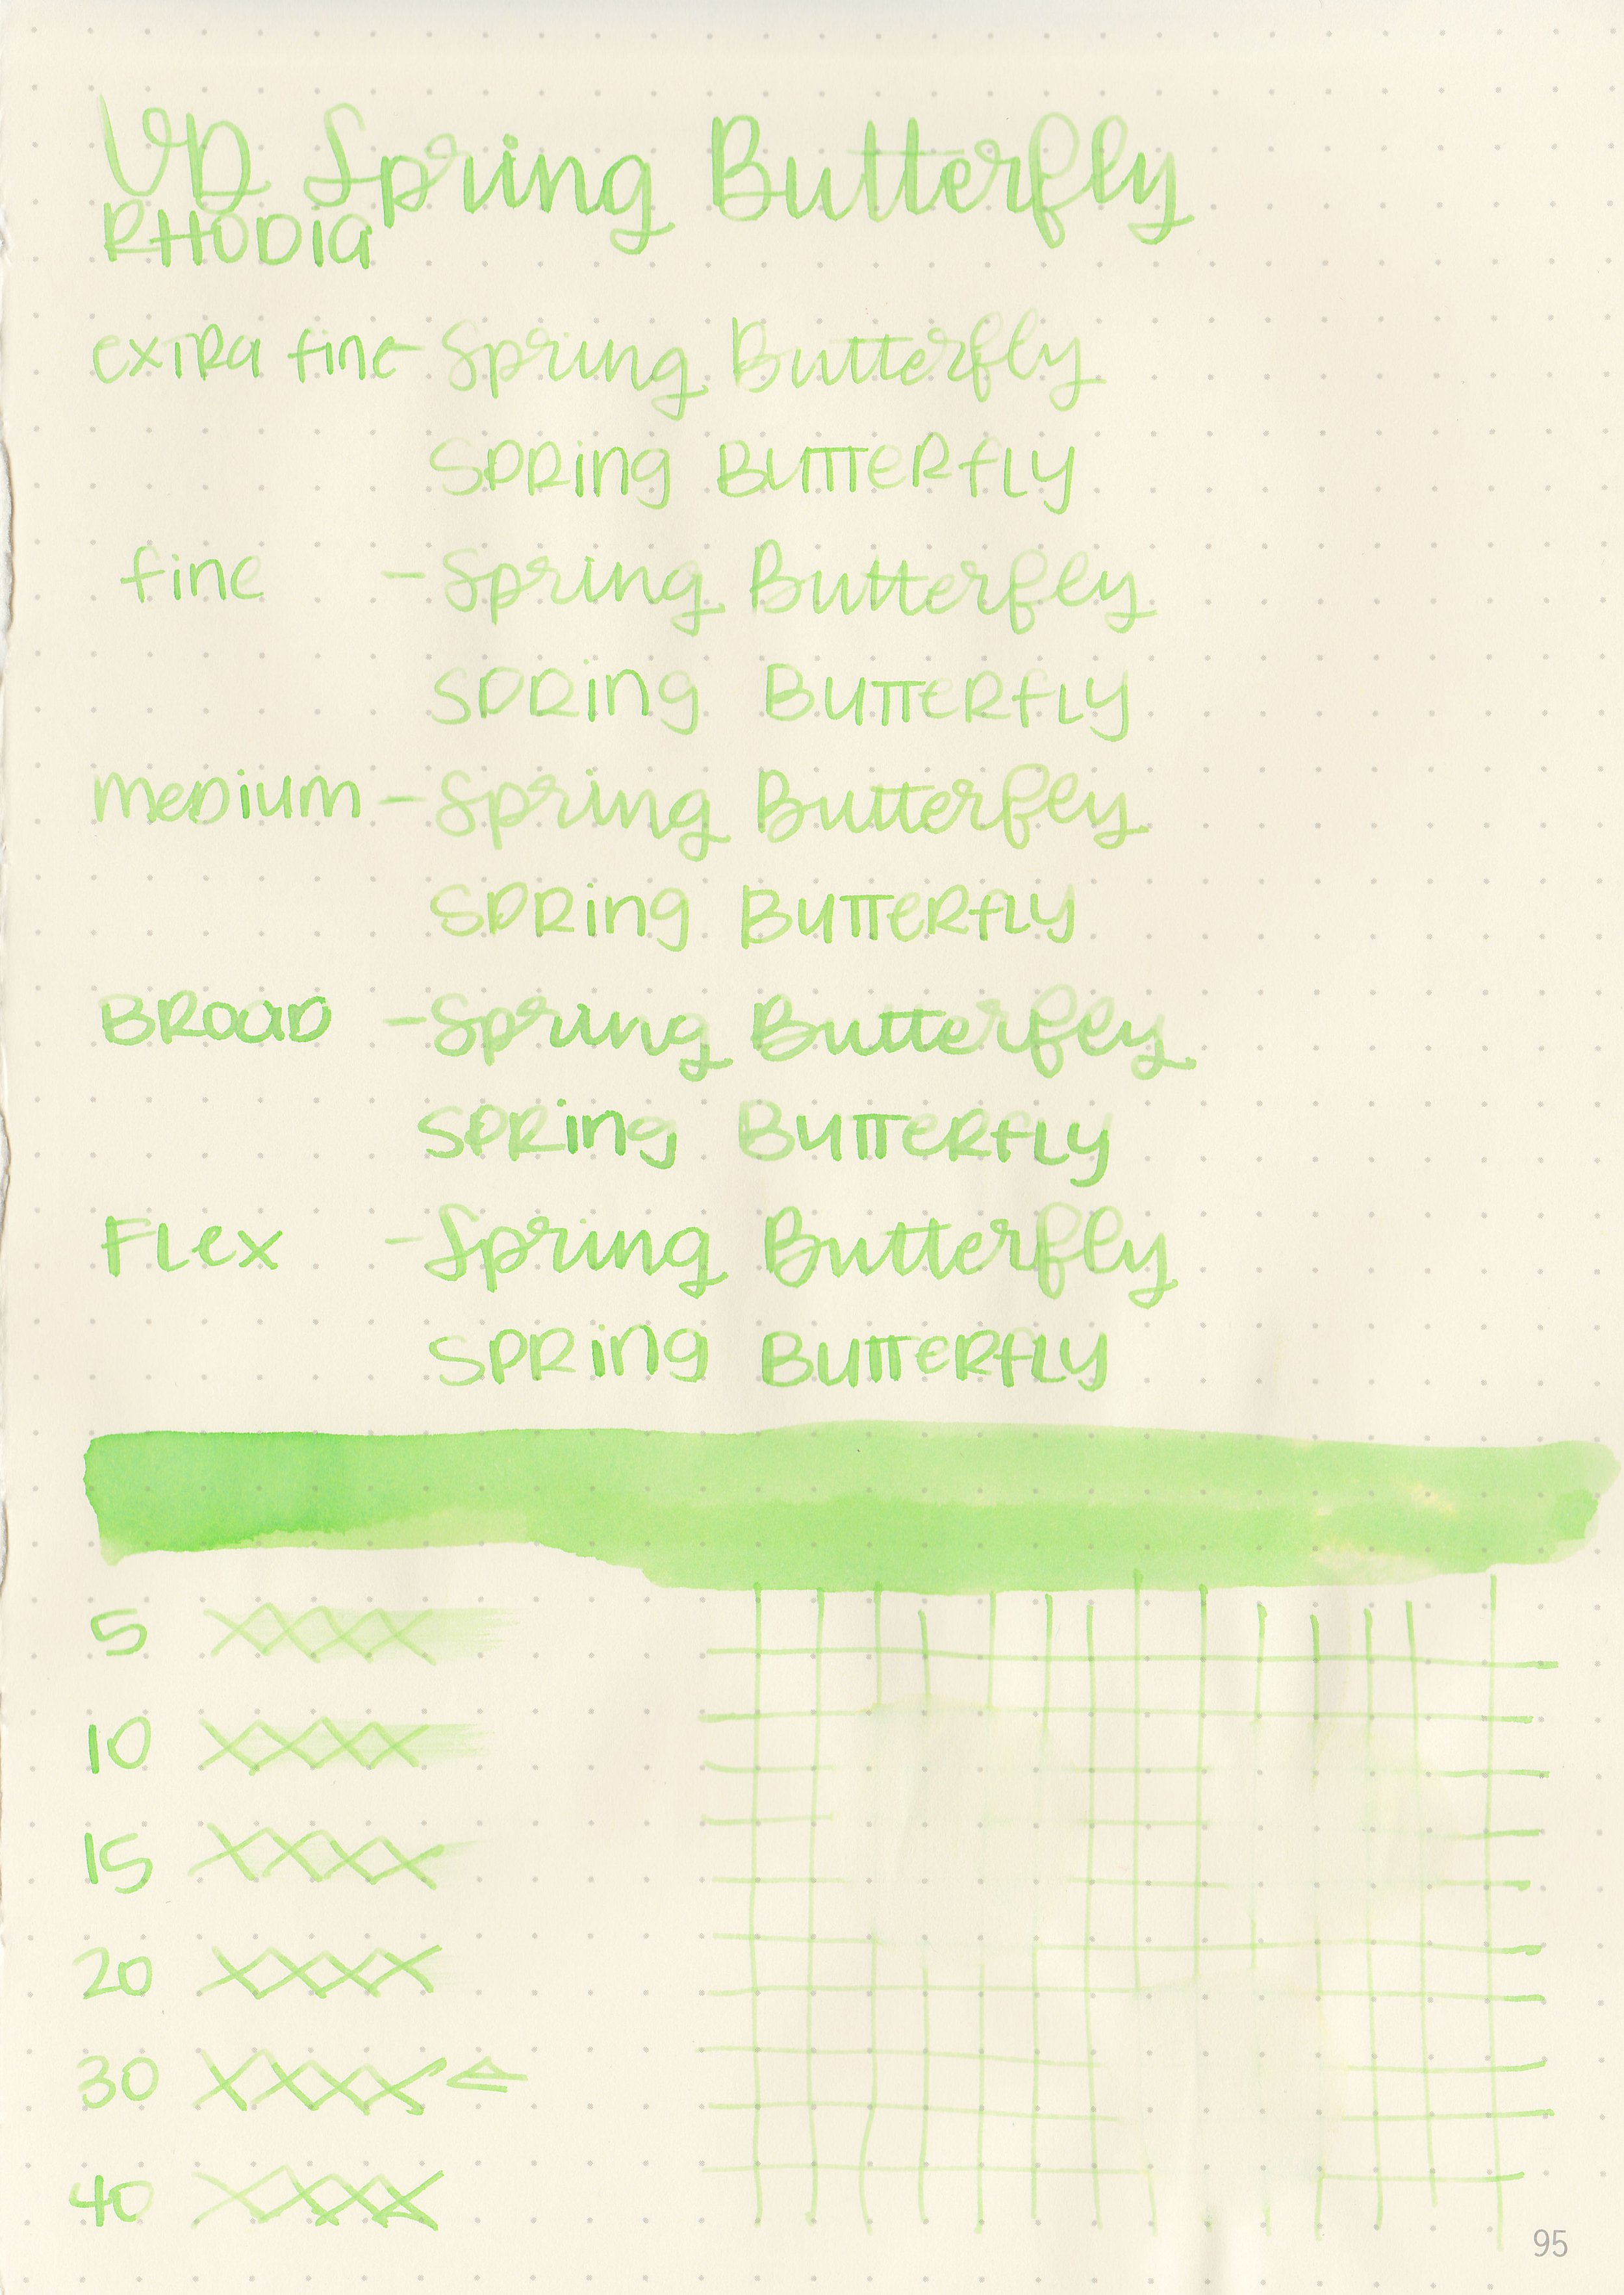 VD Spring Butterfly
RHODIA
extra fine - Spring Butterfly
SPRing BUTTeRfLY
fine - Spring Butterfly
SPRing BUTTeRfLY
meDium - Spring Butterfly
SPRing BUTTeRfLY
BRoaD - Spring Butterfly
SPRing BUTTeRfLY
FLex - Spring Butterfly
SPRing BUTTeRfLY
5 XXXX
10 XXXX
15 XXXX
20 XXXX
30 XXXX
40 XXXX
95